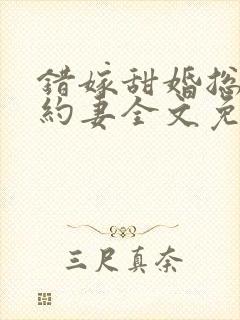 错嫁甜婚总
約妻全文免
三尺真奈